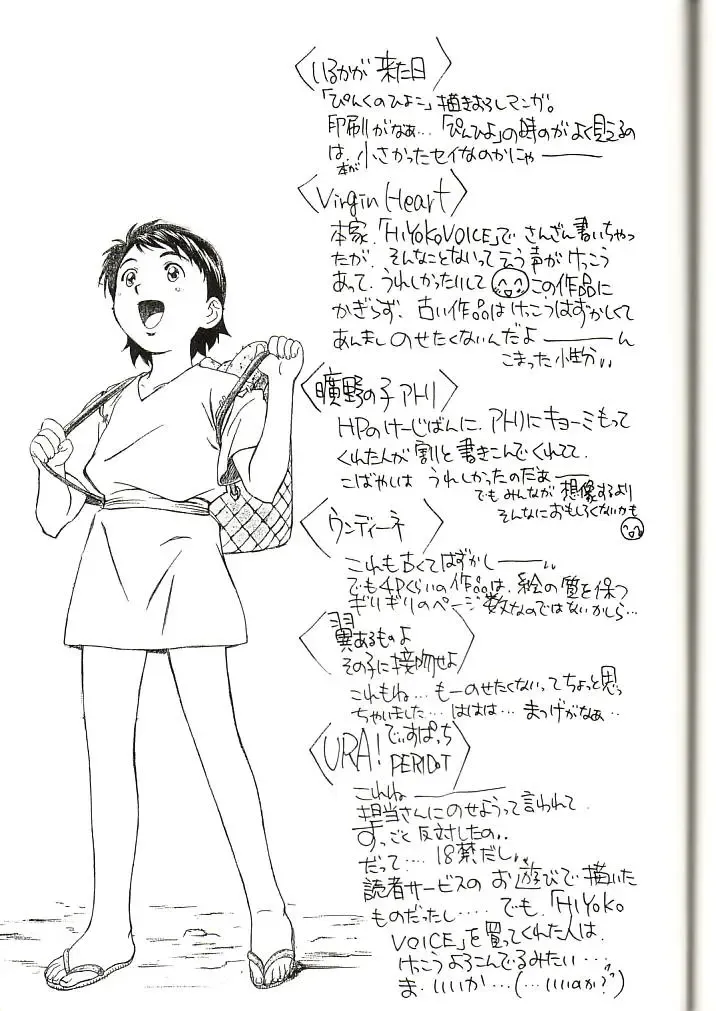 〈いるかが来た日〉
「ぴんくのひよこ」描きおろしマンガ。
印刷がなぁ…「ぴんひよ」の時のがよく見えるの
は、本が小さかったセイなのかにゃ――
〈Virgin Heart〉
本家、「HIYOKO VOICE」でさんざん書いちゃっ
たが、そんなことないって言う声がけっこう
あって、うれしかったいして この作品に
かぎらず、古い作品はけっこうはずかしくて
あんましのせたくないんだよ――ん
こまった性分、、
〈曠野の子アハリ〉
HPのけーじばんに、アハリにキョーミもって
くれた人が割と書きこんでくれてて、
こばやしは うれしかったのだぁ――
でもみんなが想像するより
そんなにおもしろくないかも
〈ウンディーネ〉
これも古くてはずかし――、、
でも4Pくらいの作品は、絵の質を保つ
ギリギリのページ数なのではないかしら…
〈翼あるものよ
その子に接吻せよ〉
これもね…もーのせたくないってちょっと思っ
ちゃいました…ははは…まつげがなぁ‥
〈URA!でぃすぱっち
PERIDOT〉
これね――
担当さんにのせようって言われて
すっごく反対したの、、
だって…18禁だし、、
読者サービスのお遊びで描いた
ものだったし…‥でも、「HIYOKO
VOICE」を買ってくれた人は、
けっこうよろこんでるみたい…
ま、いいか…(…いいのか?)